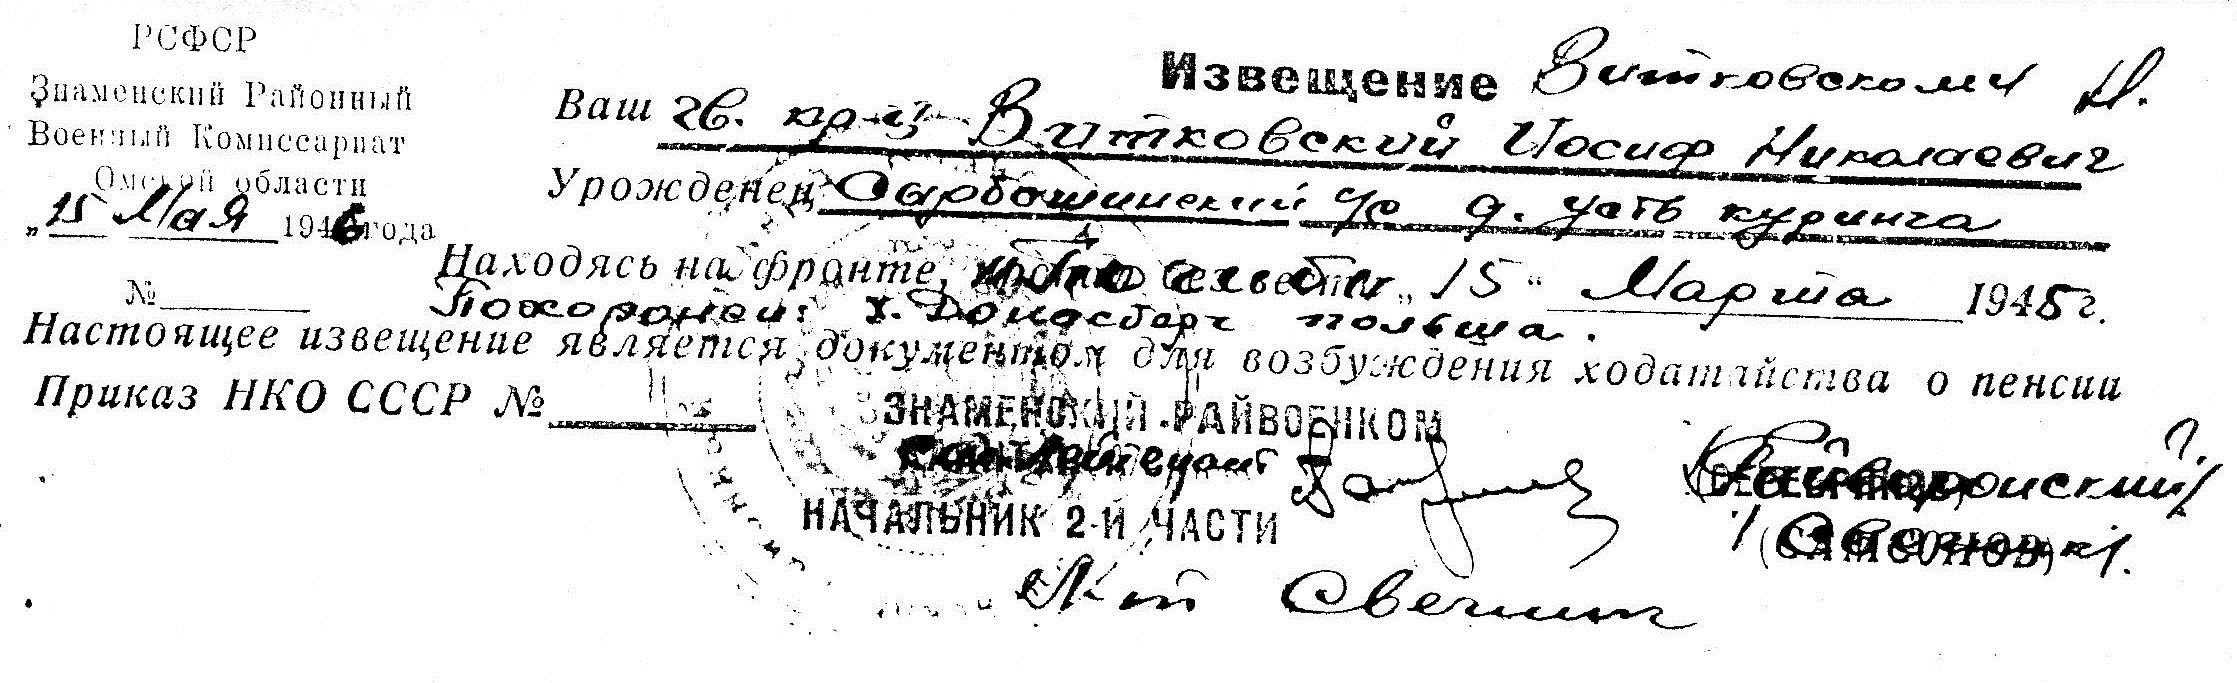 РСФСР
Знаменский Районный
Военный Комиссариат
Омской области
„15 Мая 1946 года
№
Извещение Витковскому Н.
Ваш гв. кр-ц Витковский Иосиф Николаевич
Урожденец Сырбашинский с/с д. Усть куринга
Находясь на фронте, „15“ Марта 1945 г.
Похоронен: Польша.
Настоящее извещение является документом для возбуждения ходатайства о пенсии
Приказ НКО СССР №
ЗНАМЕНСКИЙ РАЙВОЕНКОМ
лейтенант Гайворонский/
НАЧАЛЬНИК 2-Й ЧАСТИ